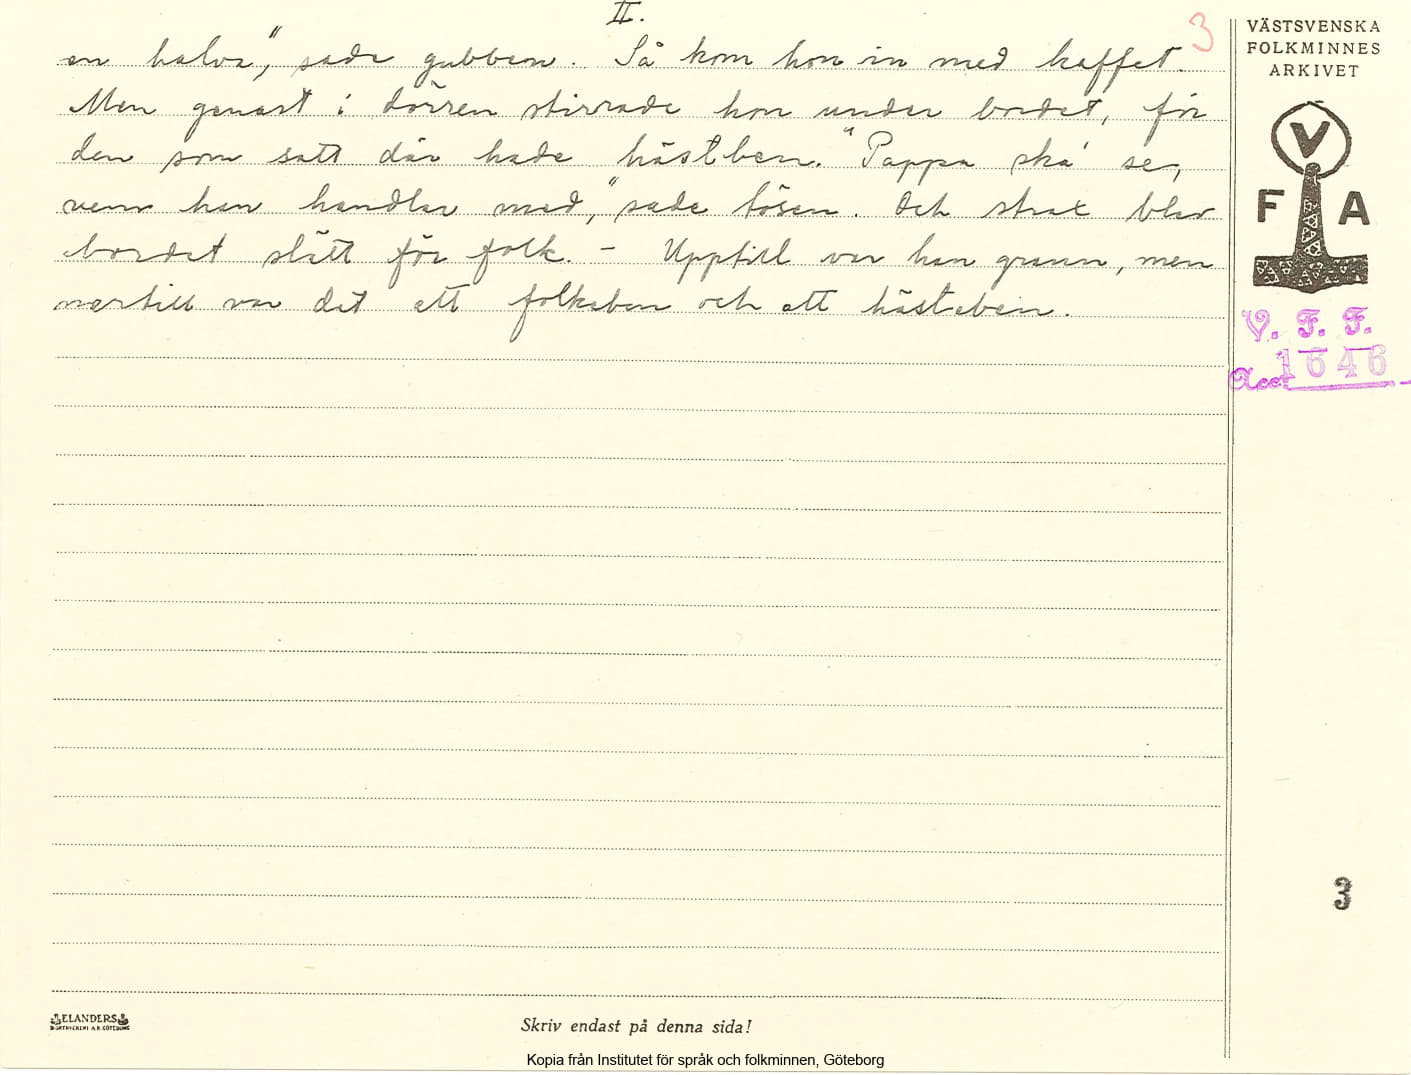 II.
3
en halva", sade gubben. Så kom hon in med kaffet.
Men genast i dörren stirrade hon under bordet, för
den som satt där hade hästben. "Pappa ska' se,
vem han handlar med," sade tösen. Och strax blev
bordet slätt för folk. – Upptill var han grann, men
nertill var det ett folkaben och ett hästaben.
VÄSTSVENSKA
FOLKMINNES
ARKIVET
V
F A
V. F. F.
Acc. 1646
3
ELANDERS
BOKTRYCKERI A.B. GÖTEBORG
Skriv endast på denna sida!
Kopia från Institutet för språk och folkminnen, Göteborg